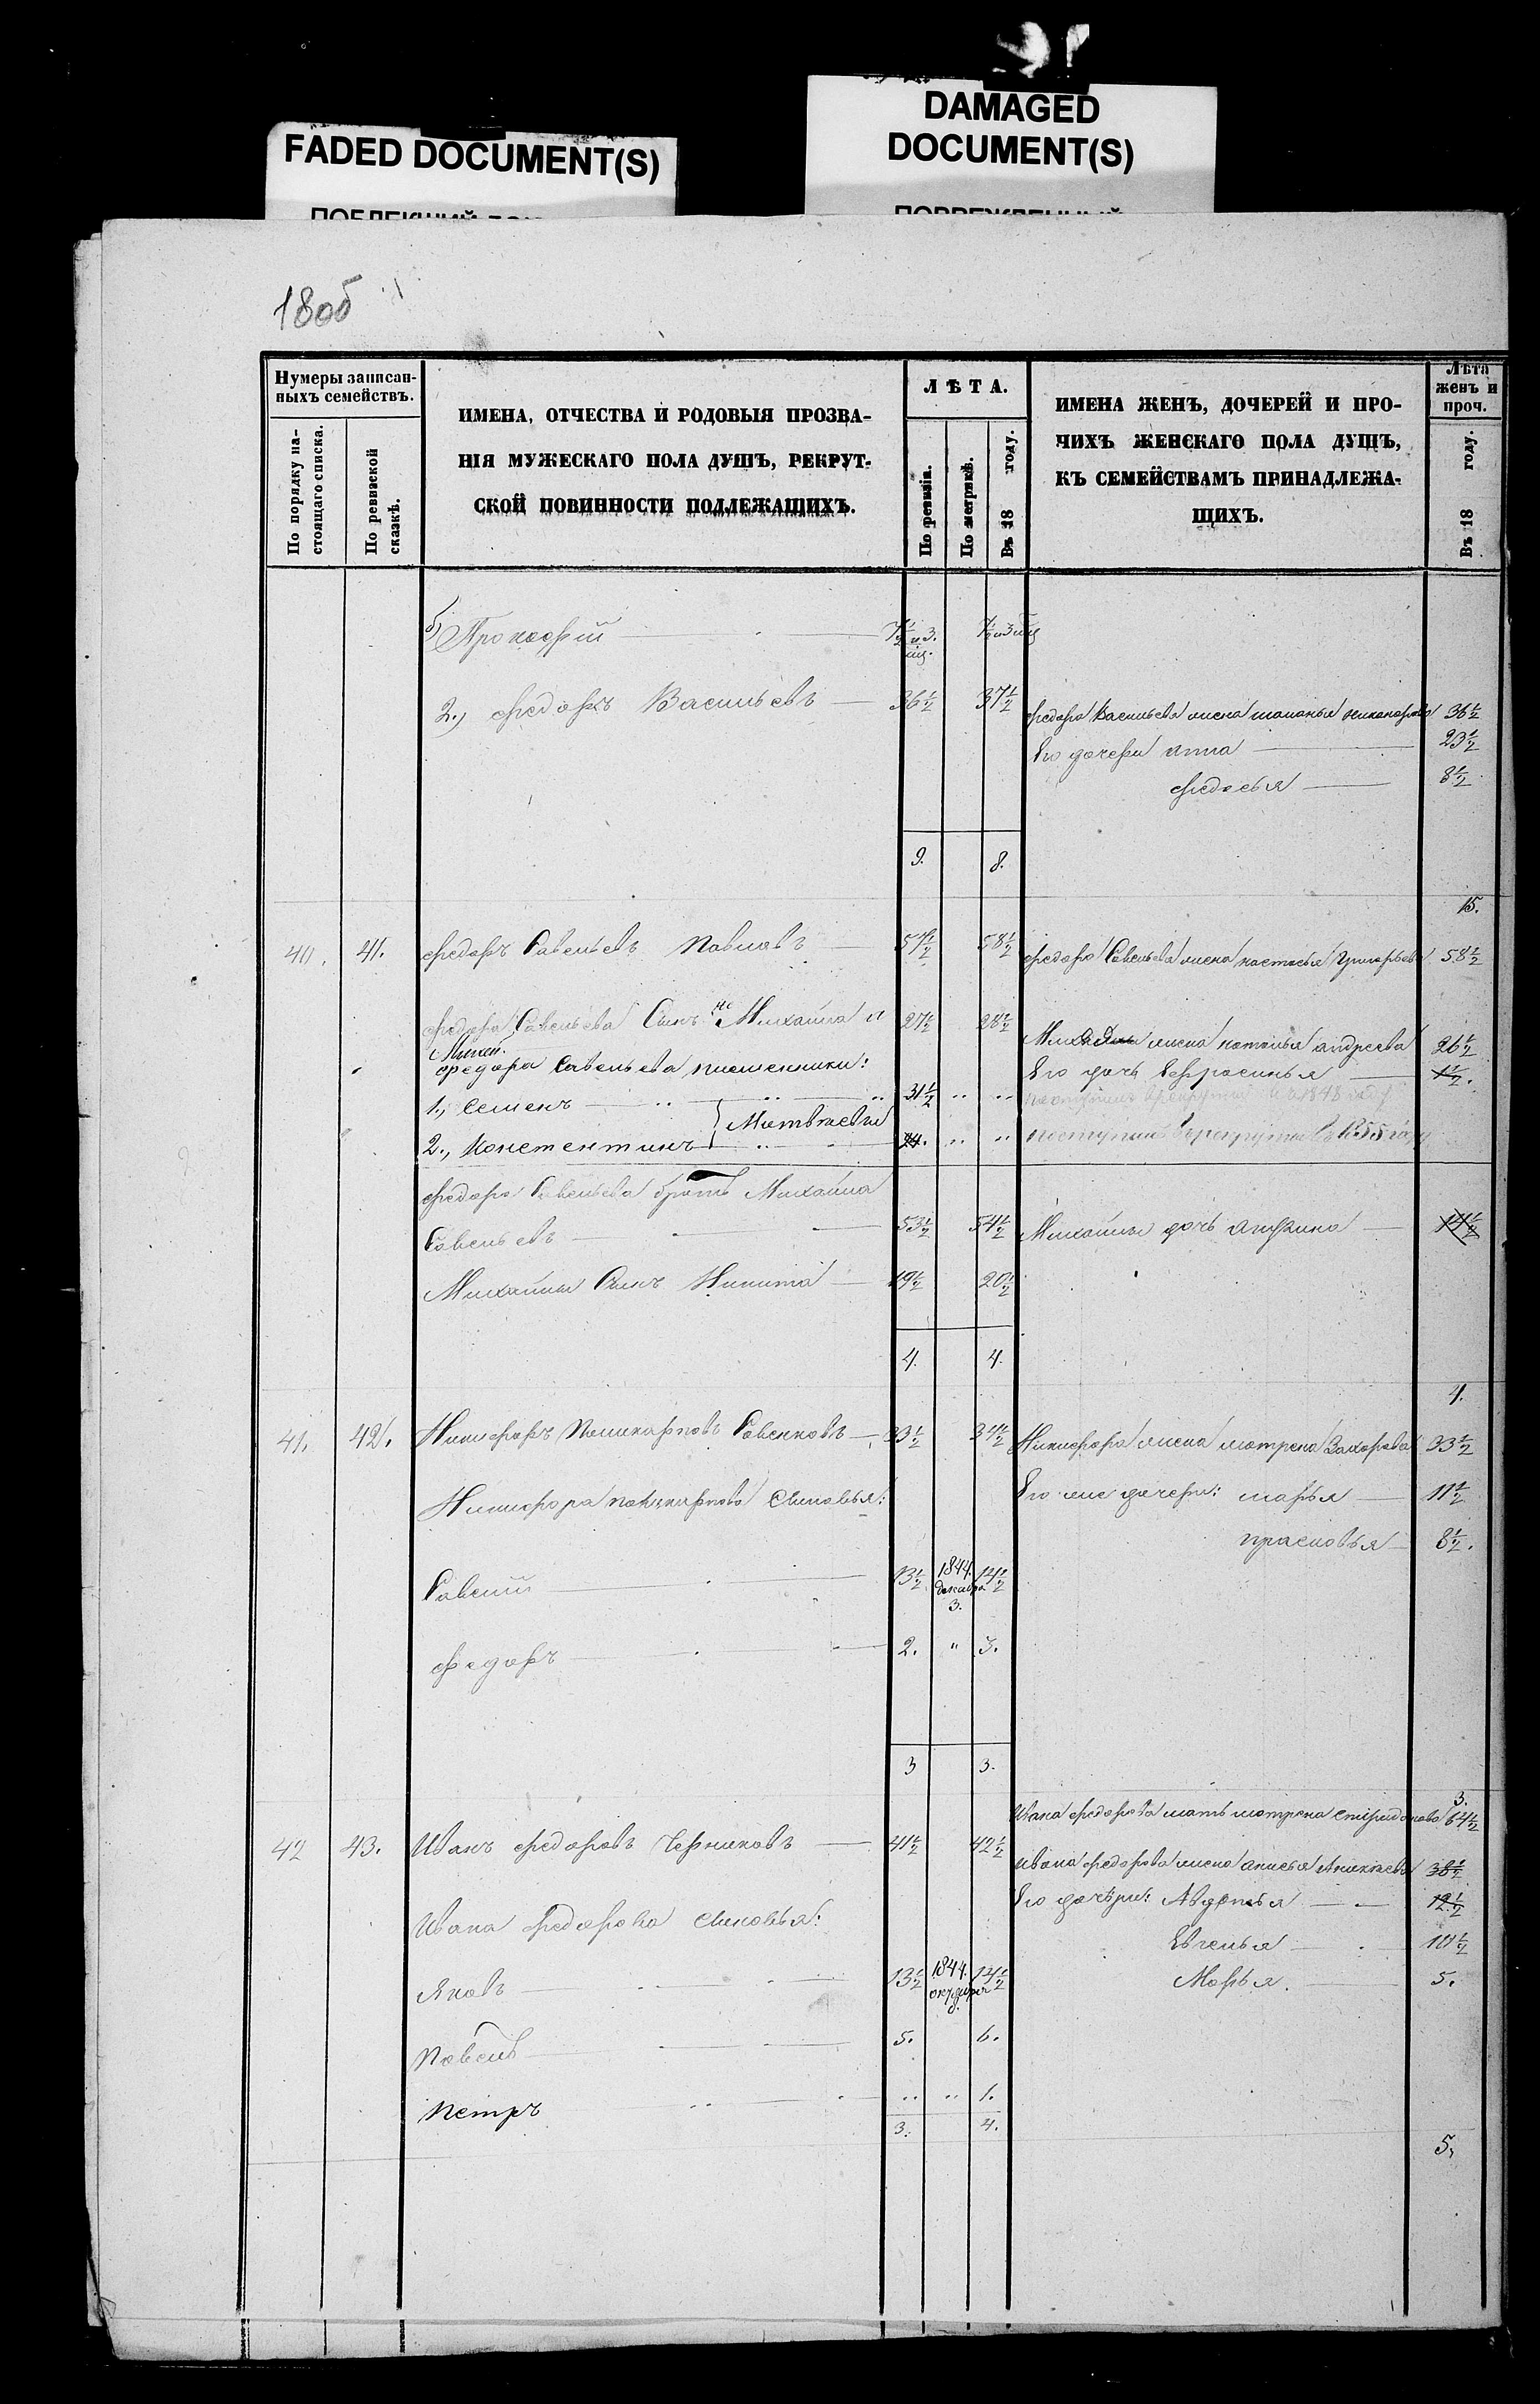 FADED DOCUMENT(S)
DAMAGED
DOCUMENT(S)
180об
Нумеры записан-
ныхъ семействъ.
По порядку на-
стоящаго списка.
По ревизской
сказкѣ.
ИМЕНА, ОТЧЕСТВА И РОДОВЫЯ ПРОЗВА-
НІЯ МУЖЕСКАГО ПОЛА ДУШЪ, РЕКРУТ-
СКОЙ ПОВИННОСТИ ПОДЛЕЖАЩИХЪ.
ЛѢТА.
По ревизіи.
По метрикѣ.
Въ 18 году.
ИМЕНА ЖЕНЪ, ДОЧЕРЕЙ И ПРО-
ЧИХЪ ЖЕНСКАГО ПОЛА ДУШЪ,
КЪ СЕМЕЙСТВАМЪ ПРИНАДЛЕЖА-
ЩИХЪ.
Лѣта
женъ и
проч.
Въ 18 году.
б) Прокофій
2., Федоръ Васильевъ 36½ 37½ Федора Васильева жена 36½
Его дочери анна 23½
Федосья 8½
9. 8.
15.
40. 41. Федоръ Савельевъ Павловъ 57½ 58½ Федора Савельева жена настасья Григорьева 58½
Федора Савельева Сынъ Михайла 27½ 28½ жена наталья андреева 26½
Федора Савельева племенники: Его дочь Ефросинья 1½.
1., Семенъ 31½ " "
2., Констентинъ } Матвѣевы 24. " " поступилъ в рекруты въ 1855 году
Федора Савельева братъ Михайла
Савельевъ 53½ 54½ Михайлы дочь 14½
Михайлы Сынъ Никита 19½ 20½
4. 4.
4.
41. 42. Никифоръ Поликарповъ Савенковъ 33½ 34½ Никифора жена матрена Захарова 33½
Никифора поликарпова Сыновья: Его же дочери: марья 11½
прасковья 8½.
Савелій 13½ 1844. декабря 3. 14½
Федоръ 2. " 3.
3 3.
3.
Ивана Федорова мать матрена Спиридонова 64½
42 43. Иванъ Федоровъ Черниковъ 41½ 42½
Ивана Федорова жена анисья 38½
Его дочери: Авдотья 12½
Ивана Федорова Сыновья:
Евгенья 10½
Яковъ 13½ 1844. октября 14½ Марья. 5.
Павелъ 5. 6.
Петръ " " 1.
3. 4.
5.